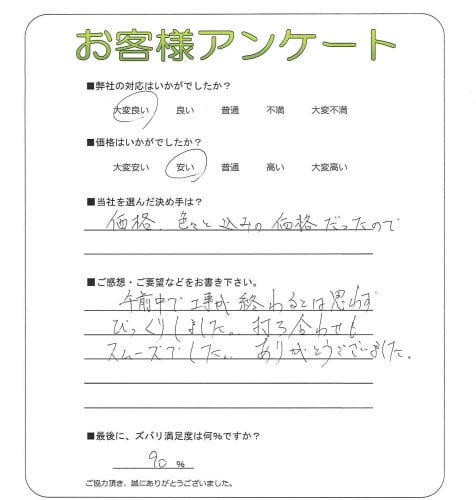 お客様アンケート
■弊社の対応はいかがでしたか？
大変良い 良い 普通 不満 大変不満
■価格はいかがでしたか？
大変安い 安い 普通 高い 大変高い
■当社を選んだ決め手は？
価格、色々と込みの価格だったので
■ご感想・ご要望などをお書き下さい。
午前中で工事が終わるとは思わず
びっくりしました。打ち合わせも
スムーズでした。ありがとうございました。
■最後に、ズバリ満足度は何%ですか？
90 %
ご協力頂き、誠にありがとうございました。